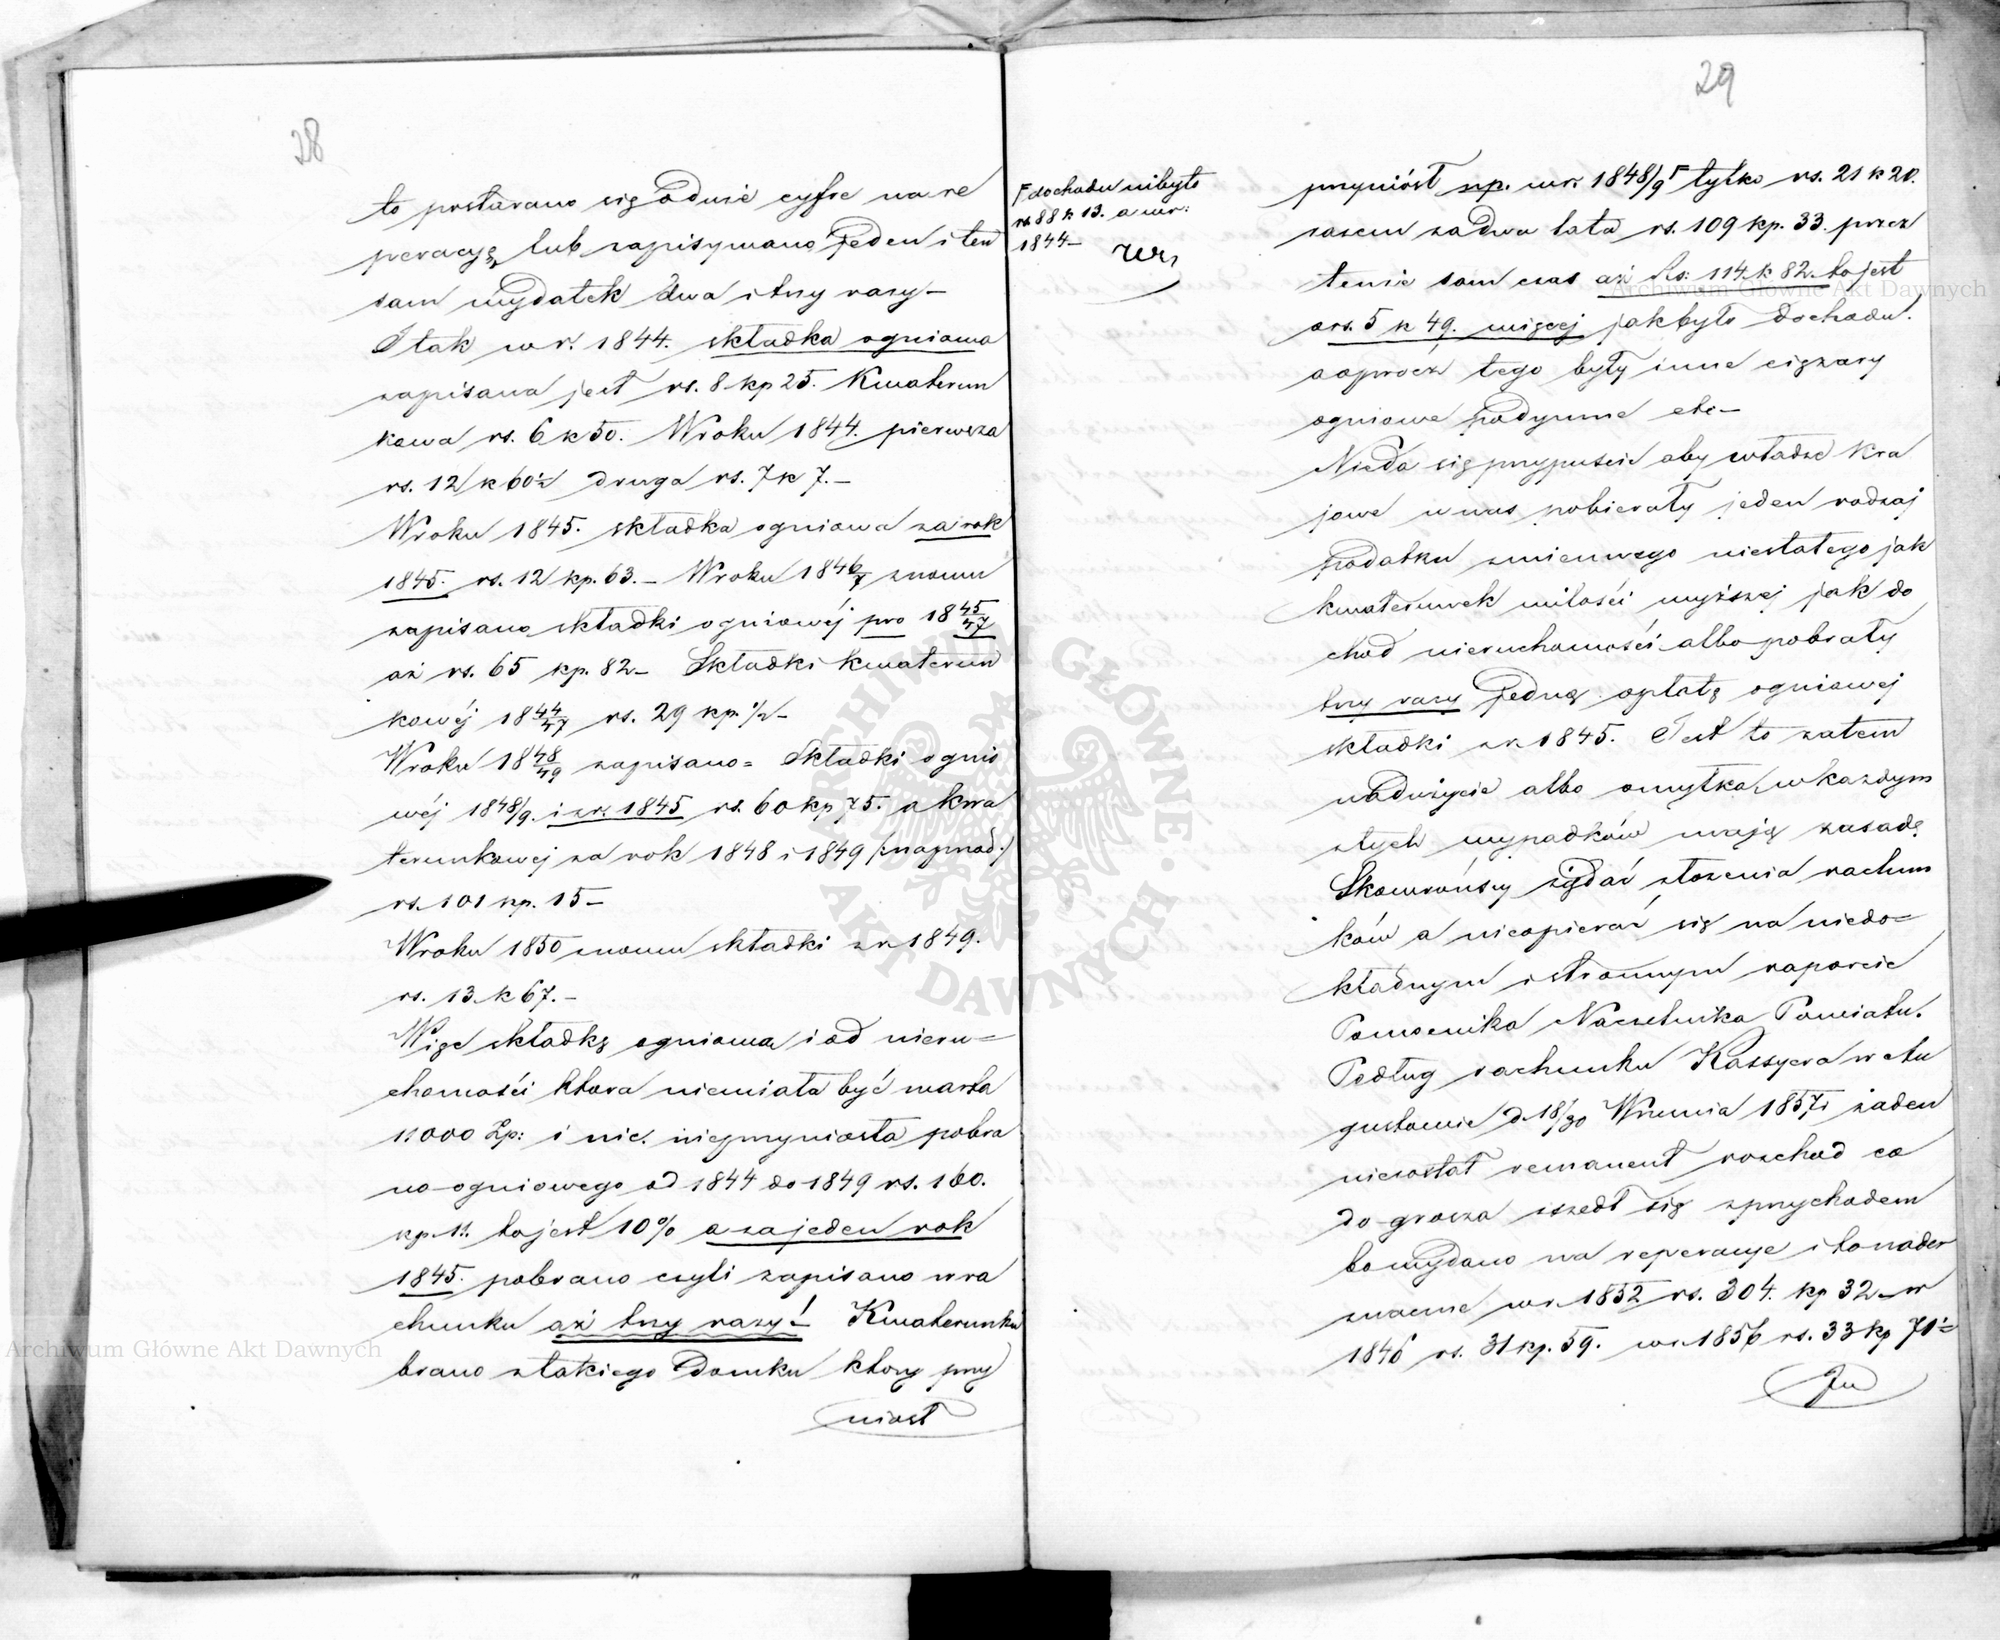 28
to postarano się odnieść cyfrę na re
peracyę, lub zapisywano jeden i ten
sam wydatek dwa i trzy razy –
I tak w r. 1844. składka ogniowa
zapisana jest rs. 8 kp 25. Kwaterun
kowa rs. 6 k 50. W roku 1844. pierwsza
rs. 12 k 60½ druga rs. 7 k 7. –
W roku 1845. składka ogniowa za rok
1845. rs. 12 kp. 63. – W roku 1846/7 znowu
zapisano składki ogniowéj pro 1845/47
aż rs. 65 kp. 82 – Składki kwaterun
kowéj 1844/47 rs. 29 kp. ½ –
W roku 1848/49 zapisano = Składki ognio
wéj 1848/9. i z r. 1845 rs. 60 kp 75. a kwa
terunkowej za rok 1848 i 1849 (: naprzód :)
rs. 101 kp. 15 –
W roku 1850 znowu składki z r. 1849.
rs. 13 k 67. –
Więc składkę ogniową i od nieru=
chomości która niemiała być warta
11000 Zp: i nic. nieprzyniosła pobra
no ogniowego od 1844 do 1849 rs. 160.
kp. 11. to jest 10% a za jeden rok
1845. pobrano czyli zapisano w ra
chunku aż trzy razy! – Kwaterunku
brano z takiego Domku ktory przy
niosł
29
Γ dochodu niby to
rs. 88 k 13. a w r:
1844 –
przyniósł np. w r. 1848/9 Γ tylko rs. 21 k 20.
razem za dwa lata rs. 109 kp. 33. przez
tenże sam czas aż Rs: 114. k 82. to jest
o rs. 5 k 49. więcej jak było dochodu.
a oprocz tego były inne ciężary
ogniowe podymne etc –
Nieda się przypuscić aby władze kra
jowe u nas pobierały jeden rodzaj
podatku zmiennego niestałego jak
kwaterunek w ilości wyższej jak do
chod nieruchomości albo pobrały
trzy razy jedną opłatę ogniowej
składki z r. 1845. Jest to zatem
nadużycie albo omyłka, w kazdym
z tych wypadków mają zasadę
Skowrońscy żądać złożenia rachun
ków a nieopierać się na niedo=
kładnym i stronnym raporcie
Pomocnika Naczelnika Powiatu.
Podług rachunku Kassyera w Au
gustowie d. 18/30 Wrzesnia 1857 r żaden
niezostał remanent rozchod co
do grosza zszedł się z przychodem
bo wydano na reperacyę i to nader
znaczne w r. 1852 rs. 304. kp 32 – w
1846 rs. 31 kp. 59. w r. 1856 rs. 33 kp 71½
Archiwum Główne Akt Dawnych
Archiwum Główne Akt Dawnych
ARCHIWUM GŁÓWNE · AKT DAWNYCH ·